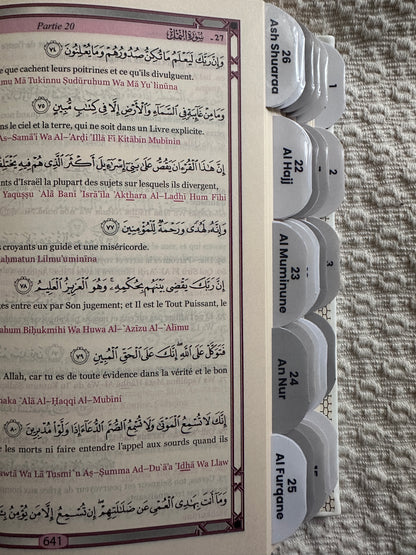 Partie 20
سورة النمل -27
وَإِنَّ رَبَّكَ لَيَعْلَمُ مَا تُكِنُّ صُدُورُهُمْ وَمَا يُعْلِنُونَ ﴿٧٤﴾
que cachent leurs poitrines et ce qu'ils divulguent.
mu Mā Tukinnu Şudūruhum Wa Mā Yu`linūna
وَمَا مِنْ غَائِبَةٍ فِي السَّمَاءِ وَالْأَرْضِ إِلَّا فِي كِتَابٍ مُبِينٍ ﴿٧٥﴾
le ciel et la terre, qui ne soit dans un Livre explicite.
As-Samā'i Wa Al-'Arđi 'Illā Fī Kitābin Mubīnin
إِنَّ هَٰذَا الْقُرْآنَ يَقُصُّ عَلَىٰ بَنِي إِسْرَائِيلَ أَكْثَرَ الَّذِي هُمْ فِيهِ
d'Israël la plupart des sujets sur lesquels ils divergent,
Yaquşşu `Alá Banī 'Isrā'īla 'Akthara Al-Ladhī Hum Fīhi
وَإِنَّهُ لَهُدًى وَرَحْمَةٌ لِلْمُؤْمِنِينَ ﴿٧٧﴾
croyants un guide et une miséricorde.
Lilmu'uminīna
إِنَّ رَبَّكَ يَقْضِي بَيْنَهُمْ بِحُكْمِهِ وَهُوَ الْعَزِيزُ الْعَلِيمُ ﴿٧٨﴾
entre eux par Son jugement; et Il est le Tout Puissant, le
Biĥukmihi Wa Huwa Al-`Azīzu Al-`Alīmu
فَتَوَكَّلْ عَلَى اللَّهِ إِنَّكَ عَلَى الْحَقِّ الْمُبِينِ ﴿٧٩﴾
Allah, car tu es de toute évidence dans la vérité et le bon
`Alá Al-Ĥaqqi Al-Mubīni
إِنَّكَ لَا تُسْمِعُ الْمَوْتَىٰ وَلَا تُسْمِعُ الصُّمَّ الدُّعَاءَ إِذَا وَلَّوْا مُدْبِرِينَ ﴿٨٠﴾
les morts ni faire entendre l'appel aux sourds quand ils
Wa Lā Tusmi`u Aş-Şumma Ad-Du`ā'a 'Idhā Wa Llaw
وَمَا أَنْتَ بِهَادِي الْعُمْيِ عَنْ ضَلَالَتِهِمْ إِنْ تُسْمِعُ إِلَّا مَنْ يُؤْمِنُ
641
26
Ash Shuaraa
22
Al Hajj
Al Muminune
23
An Nur
24
25
Al Furqane
1
2
3